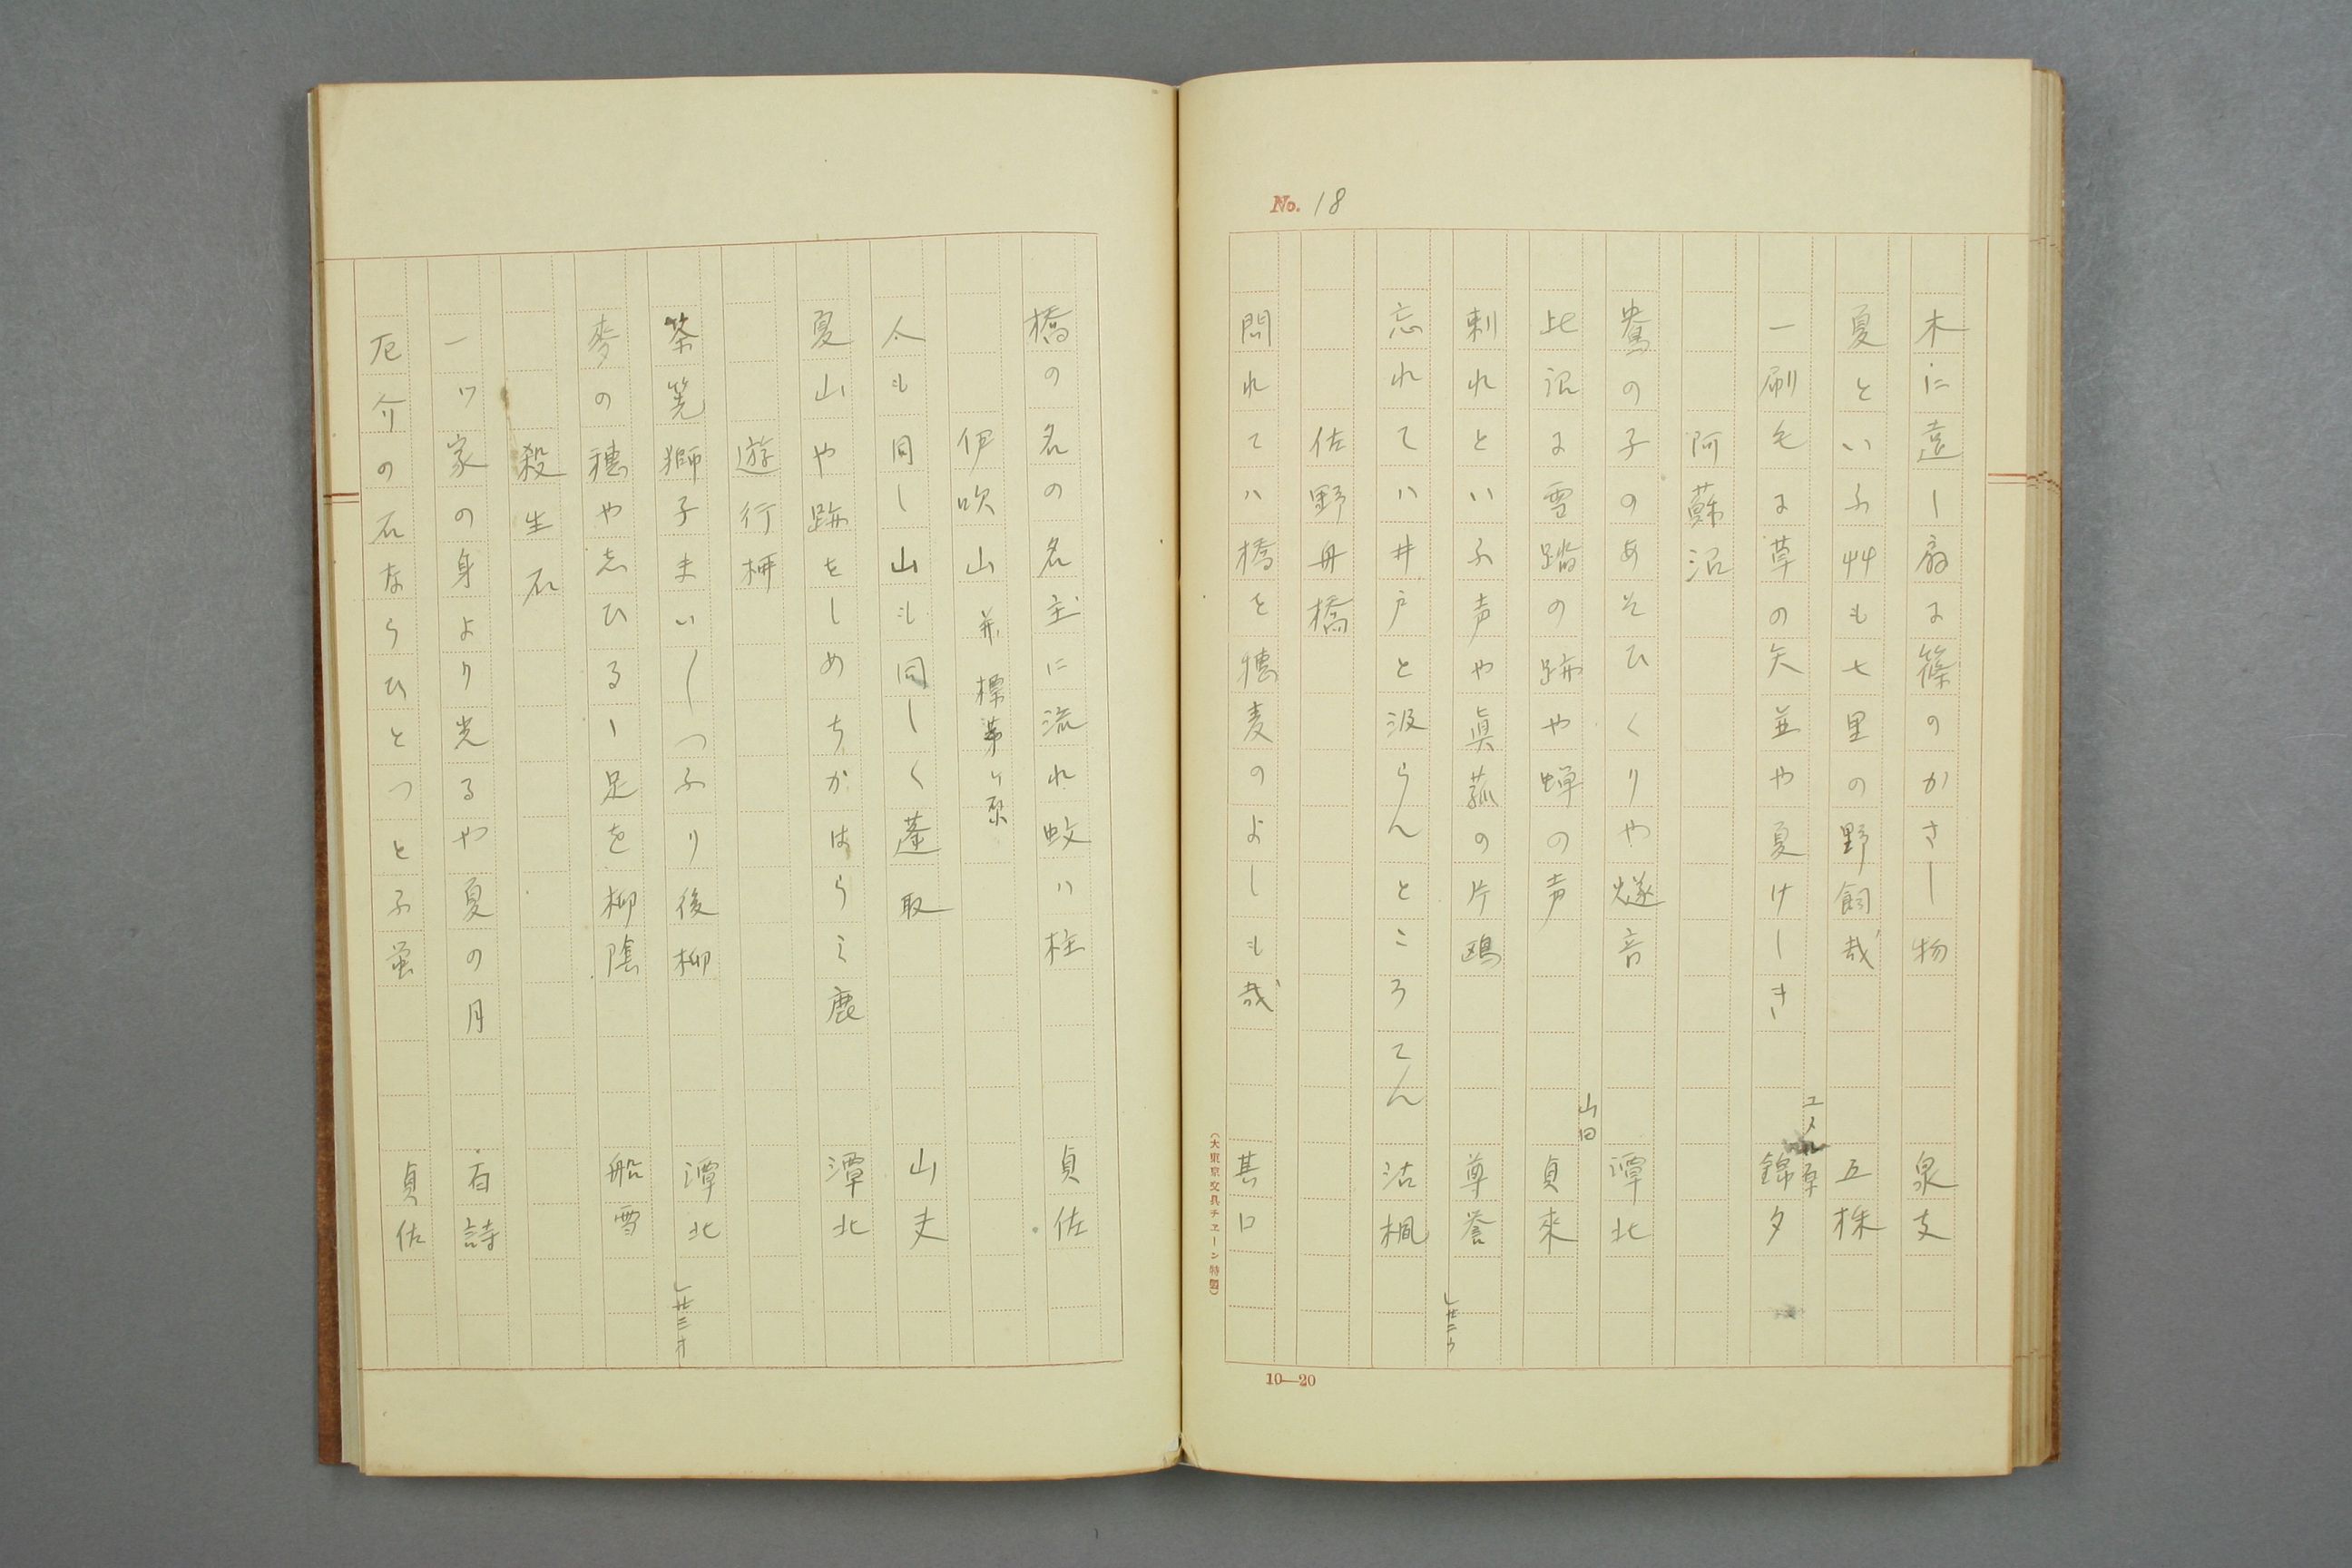 No. 18
木に遠し扇に篠のかさし物 泉支
夏といふ艸も七里の野飼哉 五株
一刷毛に草の矢並や夏けしき 錦夕
阿蘇沼
鴦の子のあそひくりや燧音 潭北
山田
此沼に雪踏の跡や蝉の声 貞來
刺れといふ声や眞菰の片鴎 尊誉
」廿二ウ
忘れてハ井戸と汲らんところてん 沾楓
佐野舟橋
問れてハ橋を穂麦のよしも哉 甚口
(大東京文具チエーン特製)
10—20
橋の名の名主に流れ蚊ハ柱 貞佐
伊吹山 并標茅ケ原
人も同し山も同しく蓬取 山丈
夏山や跡をしめちかはらミ鹿 潭北
遊行柳
茶筅獅子まいしつふり後柳 潭北
」廿三オ
麥の穂や志ひるゝ足を柳陰 船雪
殺生石
一ツ家の身より光るや夏の月 百詩
厄介の石ならひとつとふ蛍 貞佐